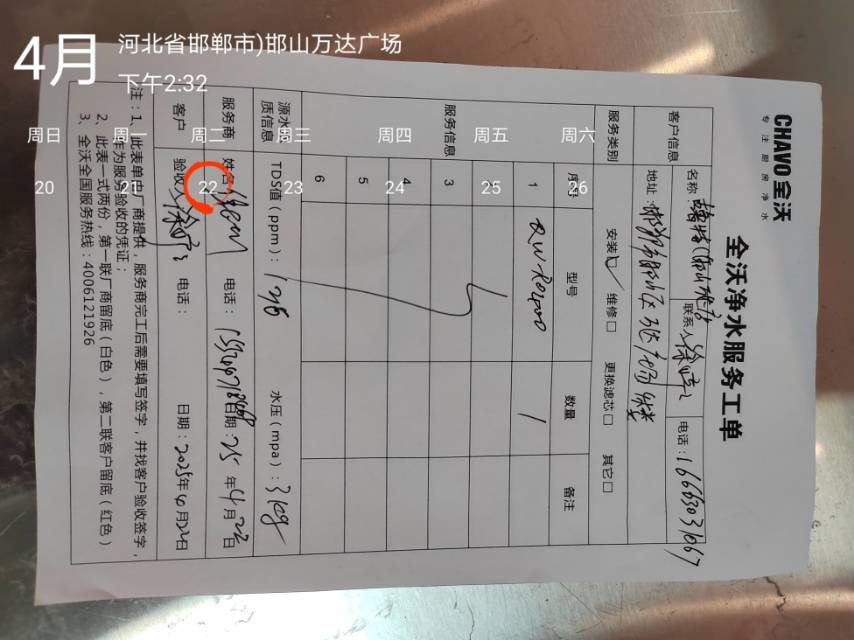 4月
河北省邯郸市)邯山万达广场
下午2:32
周日 周一 周二 周三 周四 周五 周六
20 21 22 23 24 25 26
CHAVO全沃
专注厨房净水
全沃净水服务工单
客户信息
名称:
联系人:
电话:16663031067
地址:
服务类别
安装□ 维修□ 更换滤芯□ 其它□
服务信息
序号 型号 数量 备注
1 1
2
3
4
5
6
源水水质信息
TDS值(ppm): 水压(mpa):
服务商
姓名: 电话: 日期:25年4月22日
客户
验收: 电话: 日期:2025年4月22日
注:1、此表单由厂商提供,服务商完工后需要填写签字,并找客户验收签字,
作为服务验收的凭证;
2、此表一式两份,第一联厂商留底(白色),第二联客户留底(红色)
3、全沃全国服务热线:4006121926